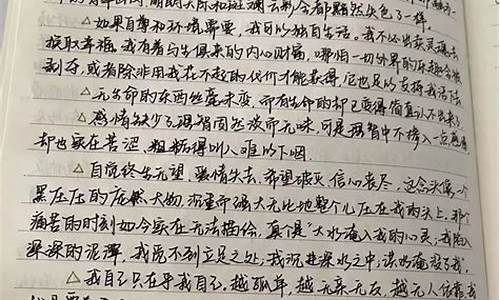 晴朗的天际和斑斓云彩今都黯然失色了一样。
△如果自尊和环境需要,我可以独自生活。我不必出卖灵魂去
换取幸福。我有着与生俱来的内心财富,哪怕一切外界的乐趣全被
剥夺,或者除非用我付不起的代价才能获得,它也足以支持我活下去。
△无生命的东西丝毫未变,而有生命的却已变得简直认不出来了
△感情缺少了理智固然淡而无味,可是理智中不掺入一点感情
却也实在苦涩、粗糙得叫人难以下咽。
△自觉终生无望,爱情失去,希望破灭,信心丧尽,这念头像一个
黑压压的庞然大物,沉重而强大无比地整个儿压在我的头上,那个
痛苦的时刻如今实在无法描绘,真个是"大水淹入我的心灵,我陷入
深深的泥潭,我觅不到立足之处;我沉进深水之中;洪水淹没了我"。
△我自己只在乎我自己,越孤单,越无亲无友,越无人依靠,我